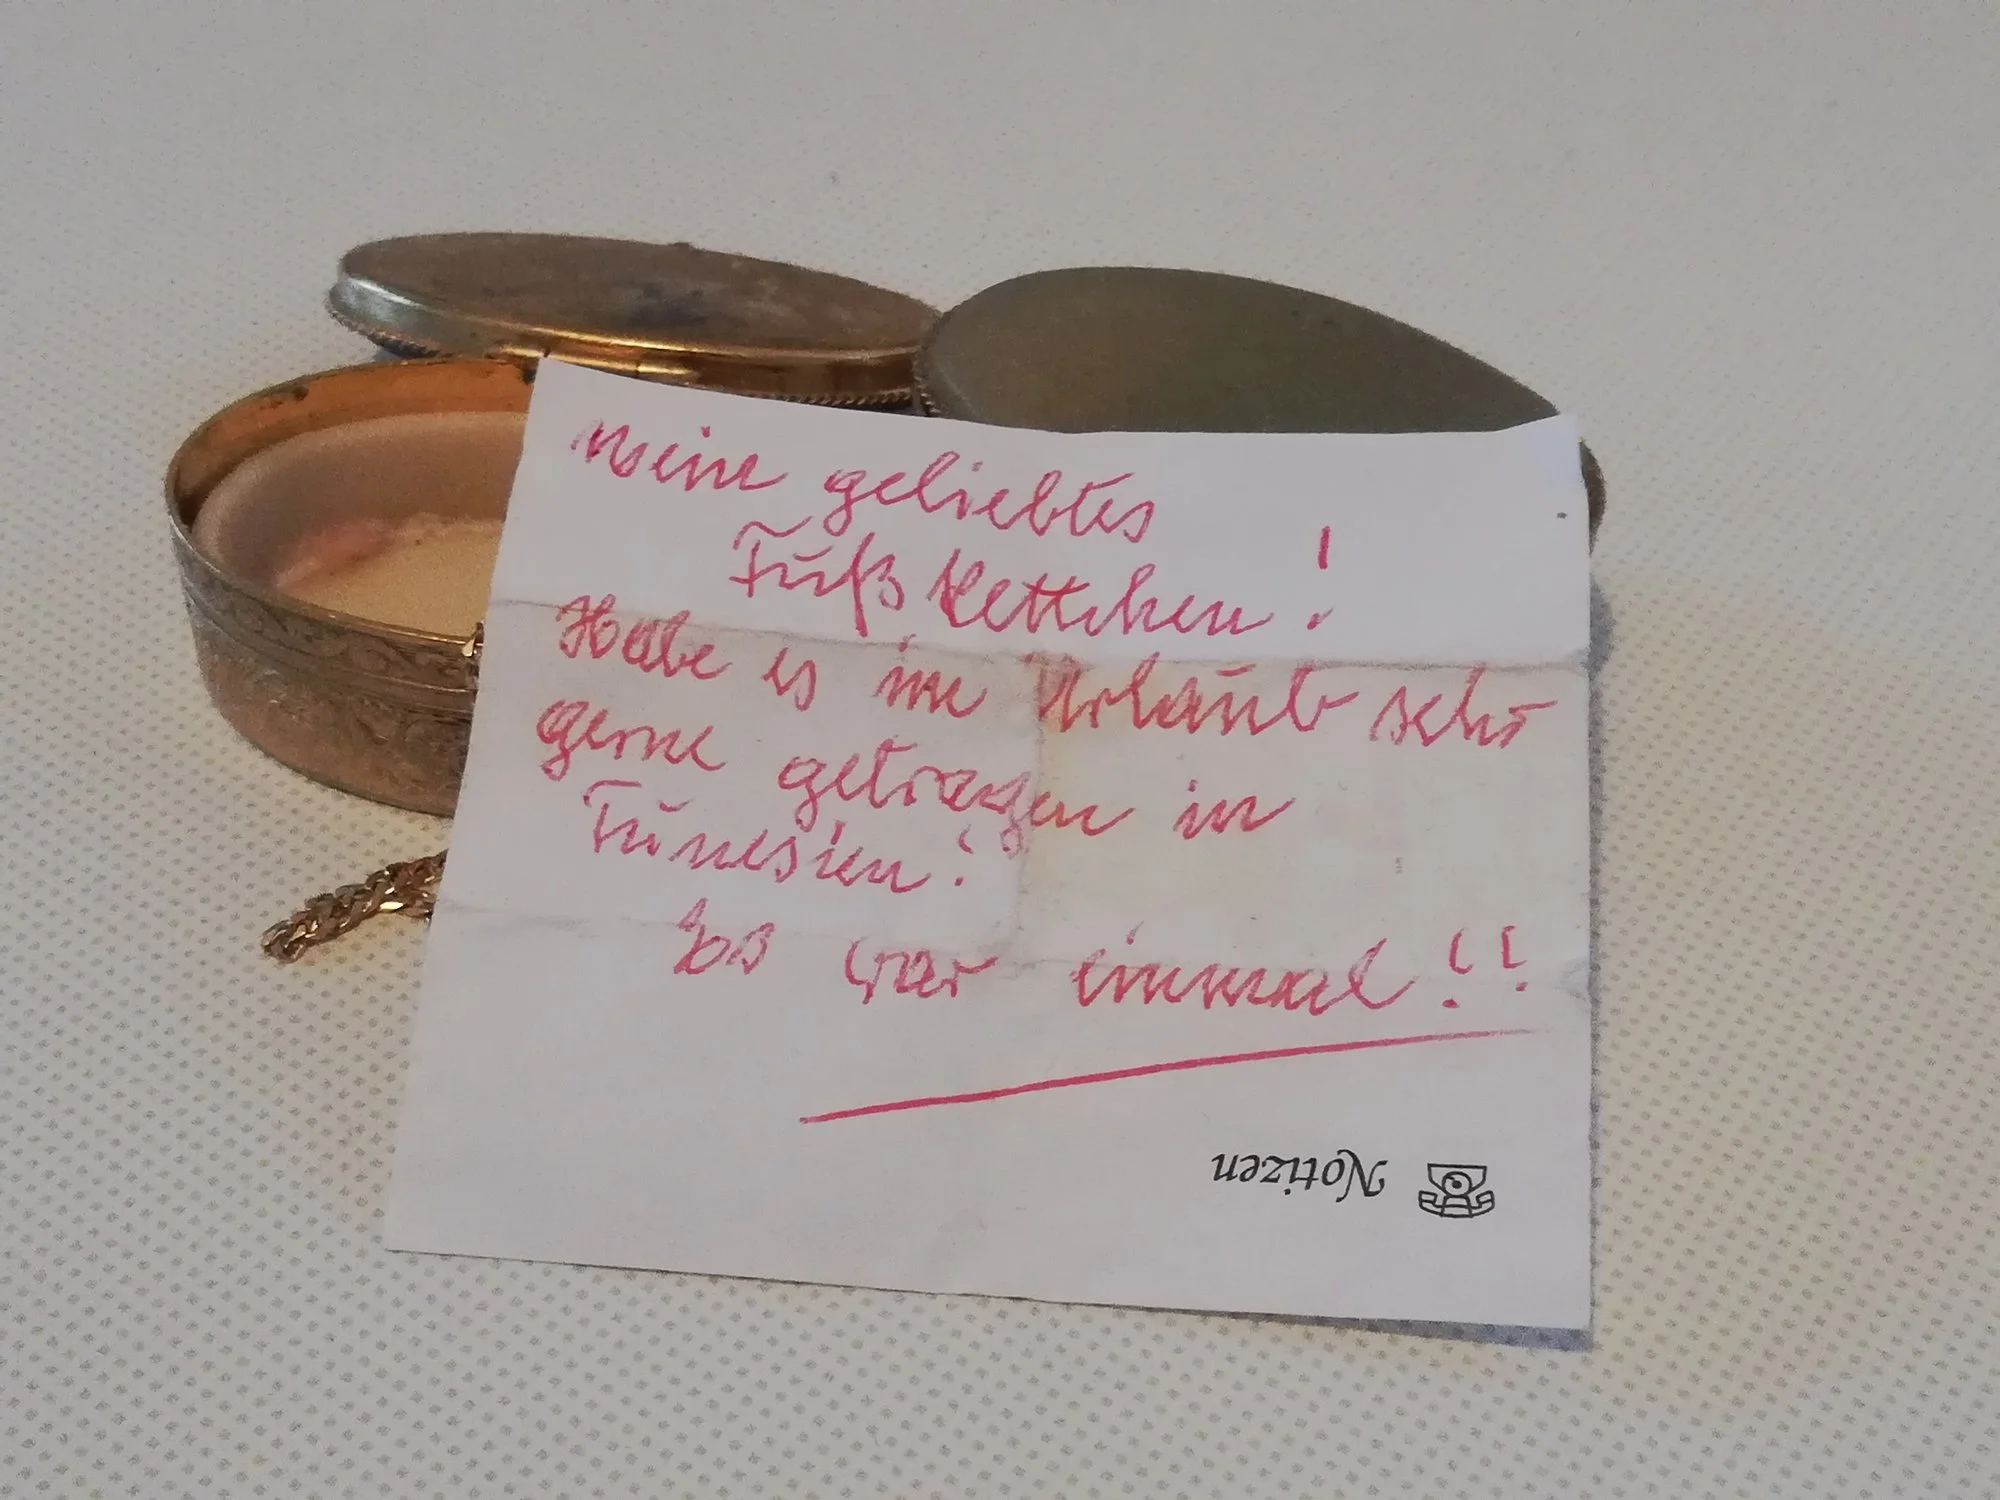 Meine geliebtes
Fußkettchen!
Habe es im Urlaub sehr
gerne getragen in
Tunesien!
Es war einmal!!
Notizen